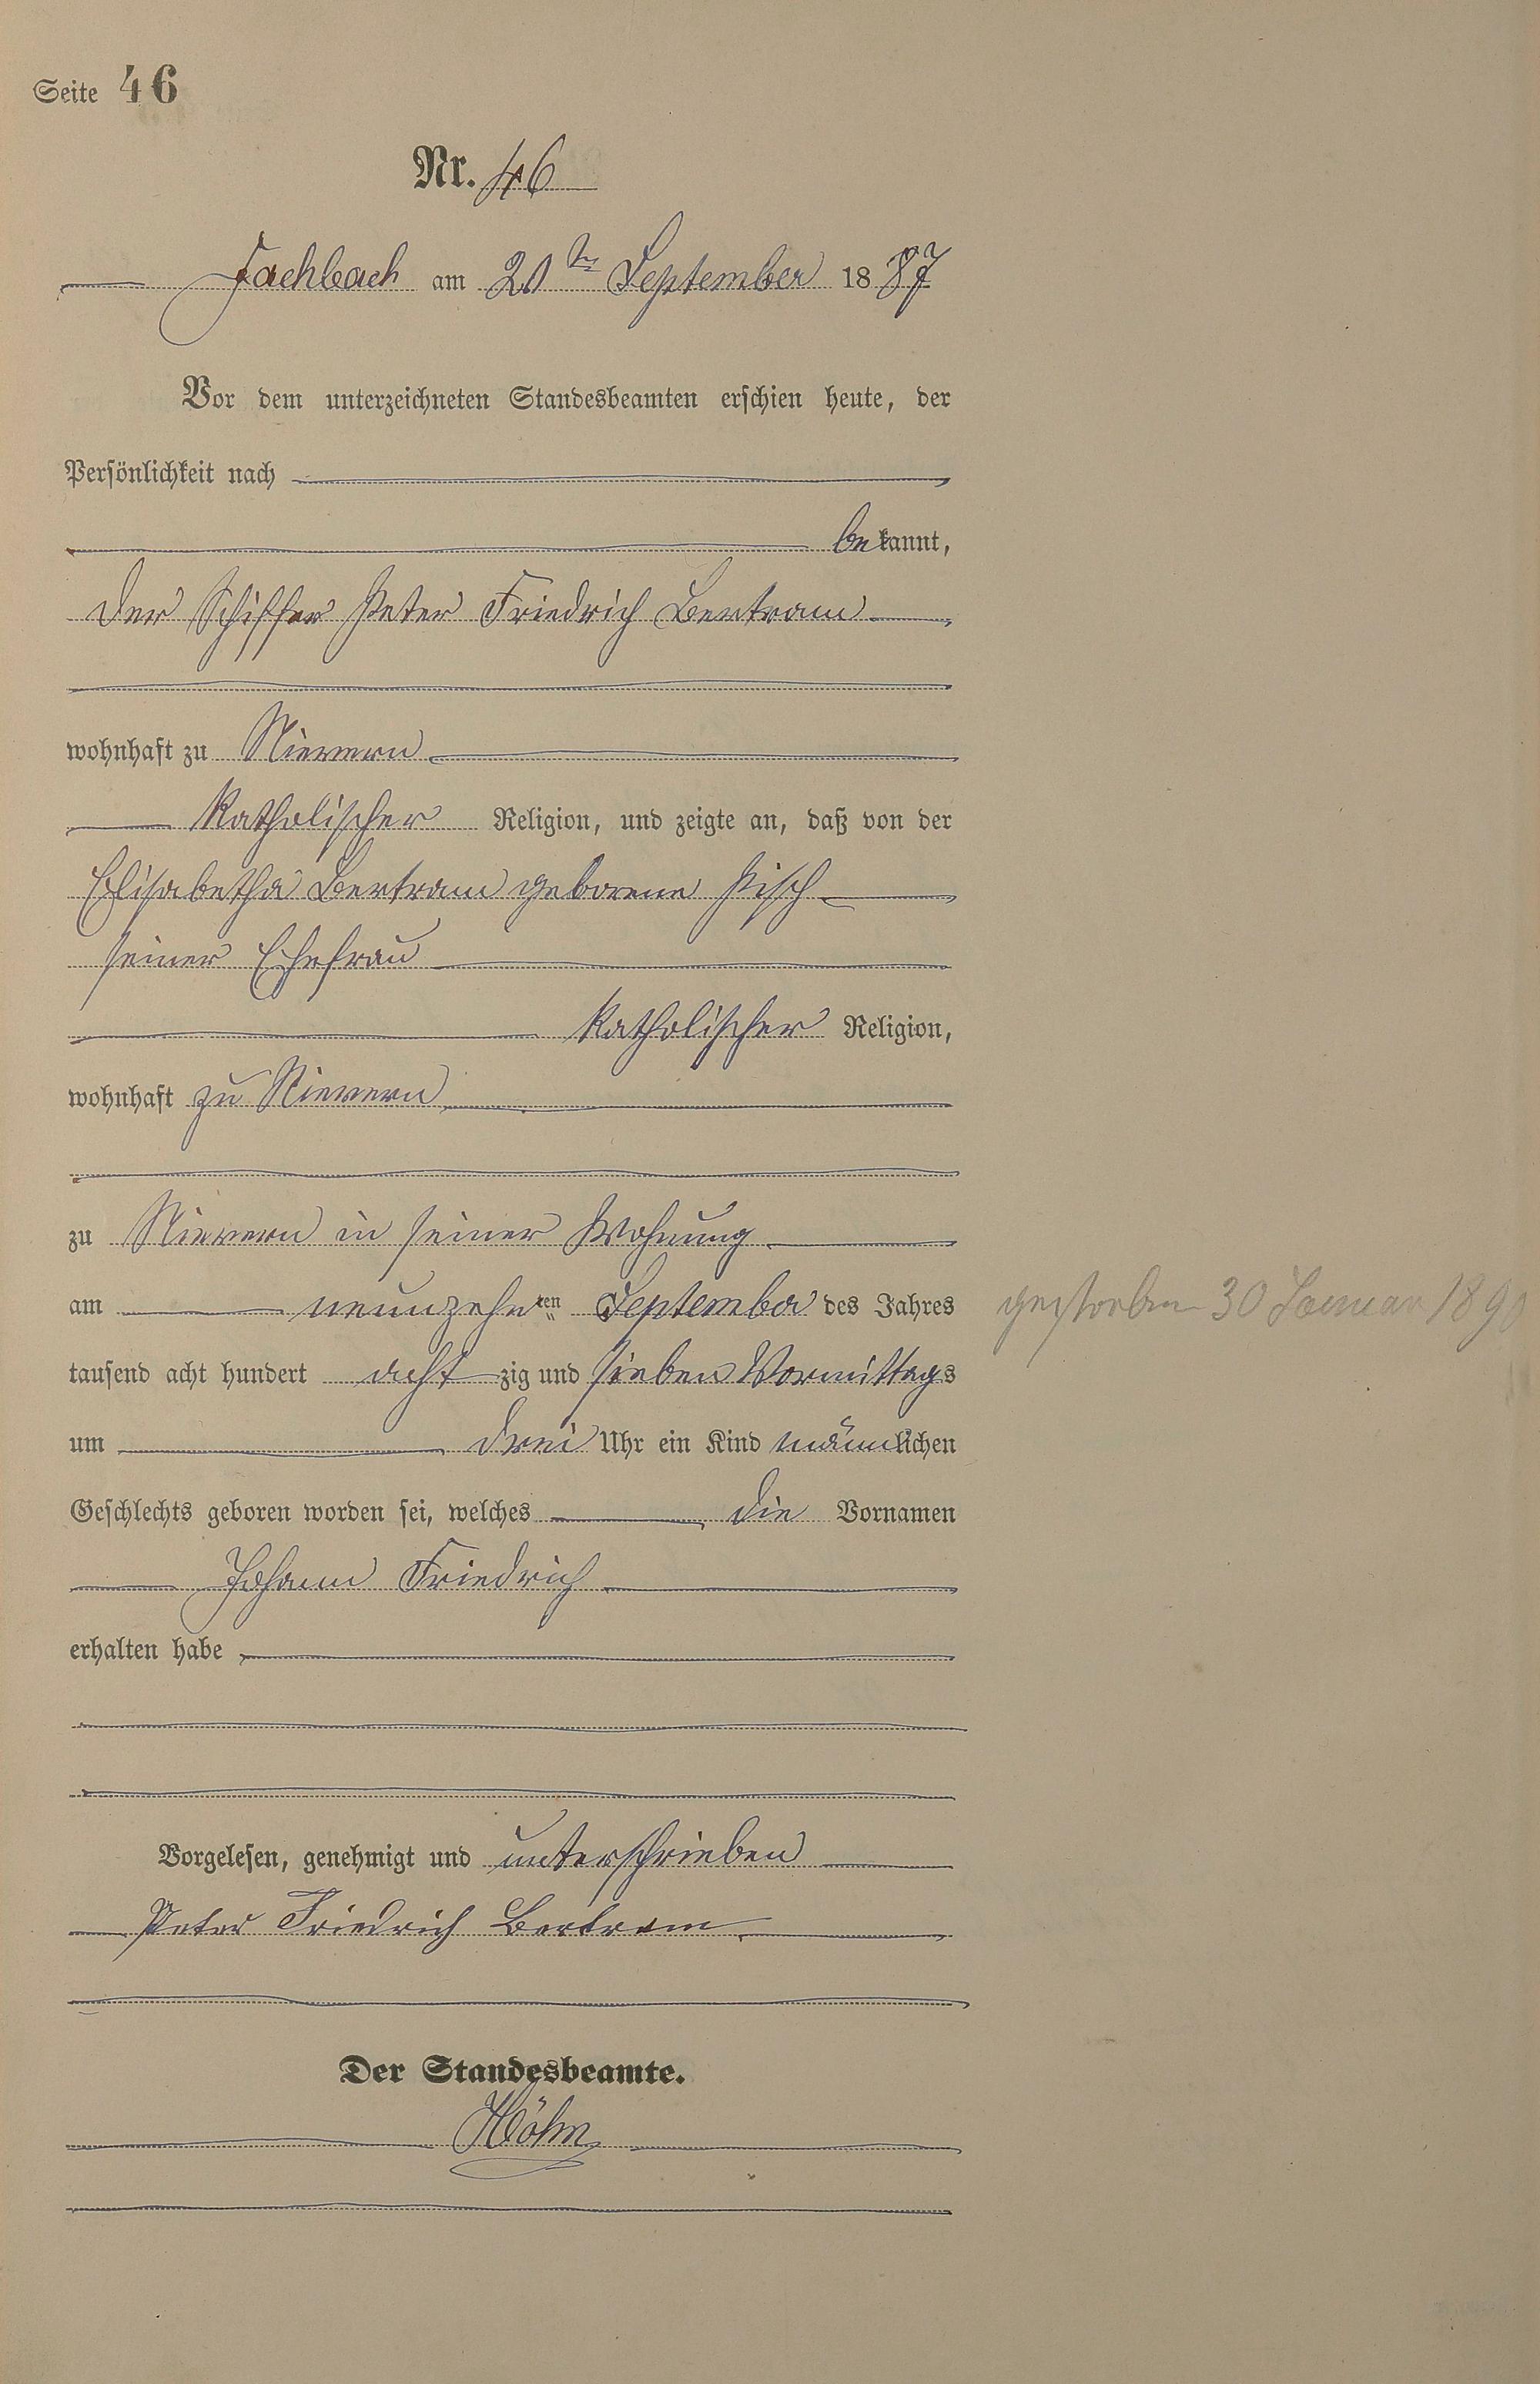 Seite 46
Nr. 46
Fachbach am 20ten September 1887
Vor dem unterzeichneten Standesbeamten erschien heute, der
Persönlichkeit nach
bekannt,
der Schiffer Peter Friedrich Bertram
wohnhaft zu Nievern
katholischer Religion, und zeigte an, daß von der
Elisabetha Bertram geborene Pisch
seiner Ehefrau
katholischer Religion,
wohnhaft zu Nievern
zu Nievern in seiner Wohnung
am neunzehnten September des Jahres
gestorben 30 Januar 1890
tausend acht hundert achtzig und sieben Vormittags
um drei Uhr ein Kind männlichen
Geschlechts geboren worden sei, welches die Vornamen
Johann Friedrich
erhalten habe
Vorgelesen, genehmigt und unterschrieben
Peter Friedrich Bertram
Der Standesbeamte.
Höhn